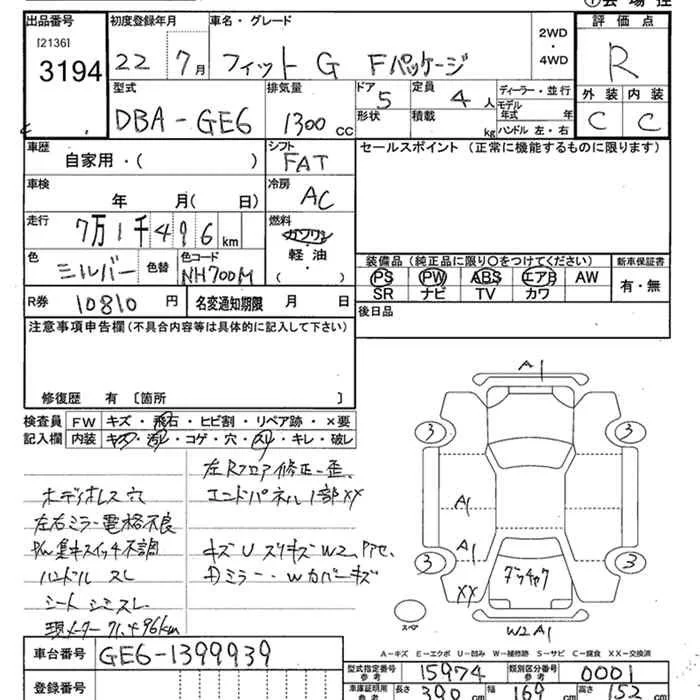 ①会場控
出品番号 初度登録年月 車名・グレード 2WD ・ 4WD 評価点
[2136]
3194 22 7月 フィット G Fパッケージ R
型式 排気量 ドア 5 定員 4人 ディーラー・並行 外装 内装
DBA-GE6 1300cc 形状 積載 kg モデル年式 年 C C
ハンドル 左・右
車歴 自家用・( ) シフト FAT セールスポイント (正常に機能するものに限ります)
車検 年 月( 日) 冷房 AC
走行 7万1千496km 燃料 ガソリン
軽油
( )
色 シルバー 色替 色コード NH700M
装備品 (純正品に限り○をつけてください) 新車保証書
PS PW ABS エアB AW 有・無
SR ナビ TV カワ
R券 10810円 名変通知期限 月 日
後日品
注意事項申告欄 (不具合内容等は具体的に記入して下さい)
修復歴 有 〔箇所 〕
検査員 FW キズ・飛石・ヒビ割・リペア跡・×要
記入欄 内装 キズ・汚レ・コゲ・穴・スレ・キレ・破レ
左Rフロア修正歪、
エンドパネル1部XX
ホディオレス穴
左右ミラー電格不良
P/W集中スイッチ不調
ハンドル スレ
シート シミスレ
現メーター 71,496km
キズU スリキズW2、
ミラー・Wカバーキズ
A1
3 3
A1
A1
3 3
XX
スペア
W2 A1
A-キズ E-エクボ U-凹み W-補修跡 S-サビ C-腐食 XX-交換済
車台番号 GE6-1399939
登録番号
型式指定番号 参考 15974 類別区分番号 参考 0001
車庫証明用 参考 長さ 390cm 幅 169cm 高さ 152cm